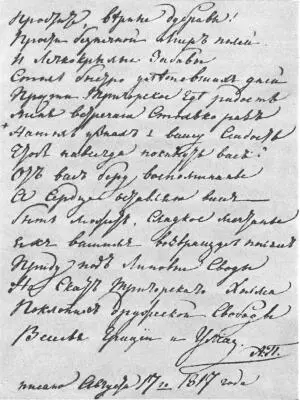 Простите, верные дубравы!
Прости безпечной миръ полей
И легкокрылые Забавы
Столь быстро улетевшихъ дней
Прости Тригорское где радость
Меня встречала Столько разъ
На толь узналъ я вашу Сладость
Чтобъ навсегда покинуть васъ!
Отъ васъ беру воспоминанье
А Сердце оставляю вамъ
Быть можетъ, Сладкое мечтанье
Я къ вашимъ возвращусь полямъ
Приду подъ Липовые Своды
На Скатъ Тригорскаго Холма
Поклонникъ дружеской Свободы
Веселья Грацiй и Ума.
А.П.
писано Августа 17го 1817 года